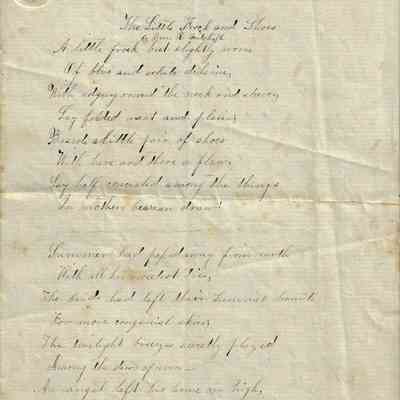 The Little Frock and Shoes
A little frock but slightly worn
Of blue and white delaine,
With edging round the neck and sleeves,
Lay folded neat and plain;
Beside a little pair of shoes
With here and there a flaw
Lay half concealed among the things
In mothers bearean draw!
Summer had passed away from earth
With all her sweetest ties,
The birds had left their summer haunts
For more congenial skies;
The twilight breezes sweetly played
Among the dews of even
An angel left his home on high,